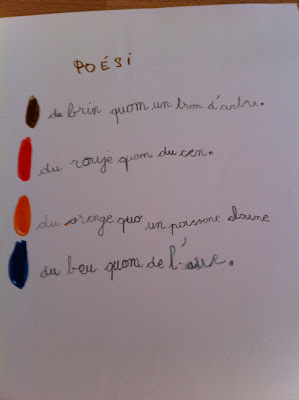 POÉSi
du brin quom un tron d'arbre.
du rouje quom du cen.
du orenge quo un poissone cloune
du beu quom de l'aue.